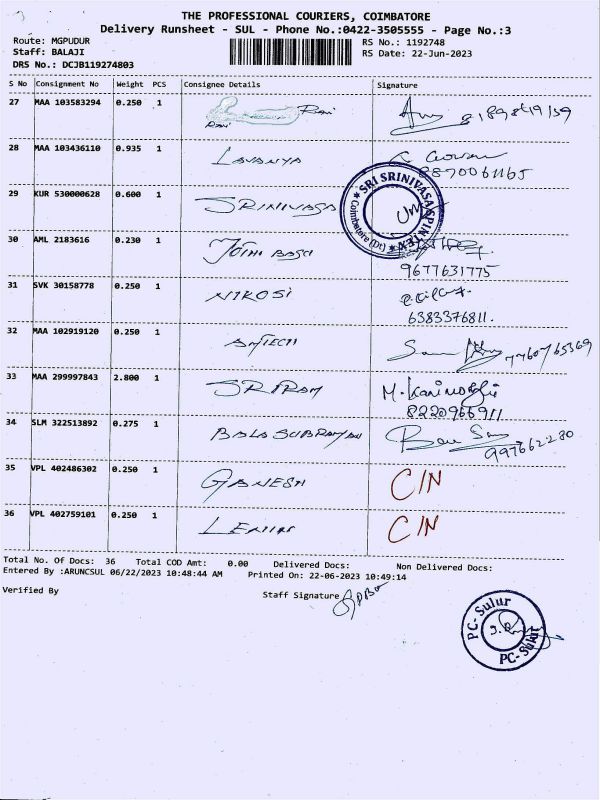 THE PROFESSIONAL COURIERS, COIMBATORE
Delivery Runsheet - SUL - Phone No.:0422-3505555 - Page No.:3
Route: MGPUDUR RS No.: 1192748
Staff: BALAJI RS Date: 22-Jun-2023
DRS No.: DCJB119274803
S No Consignment No Weight PCS Consignee Details Signature
27 MAA 103583294 0.250 1 Rani
Rani
28 MAA 103436110 0.935 1 LAVANYA
8870061165
29 KUR 530000628 0.600 1 SRINIVASA
SRI SRINIVASA SPINTEX
Coimbatore (Dt)
30 AML 2183616 0.230 1 JOTHI BASU
9677631775
31 SVK 30158778 0.250 1 NIKOSI
6383376811.
32 MAA 102919120 0.250 1 AMTECH 7760765369
33 MAA 299997843 2.800 1 SRIRAM
8220966911
34 SLM 322513892 0.275 1 BALASUBRAMANI
35 VPL 402486302 0.250 1 GANESH C/N
36 VPL 402759101 0.250 1 LENIN C/N
Total No. Of Docs: 36 Total COD Amt: 0.00 Delivered Docs: Non Delivered Docs:
Entered By :ARUNCSUL 06/22/2023 10:48:44 AM Printed On: 22-06-2023 10:49:14
Verified By Staff Signature
PC- Sulur
PC-Sulur